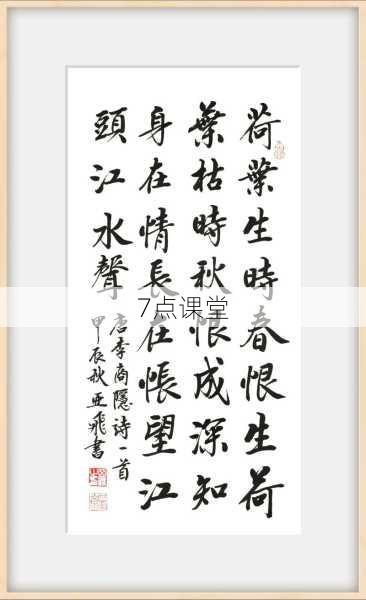 荷葉生時春恨生荷
葉枯時秋恨成深知
身在情長在悵望江
頭江水聲
唐李商隱诗一首
甲辰秋亚飛書
7点课堂